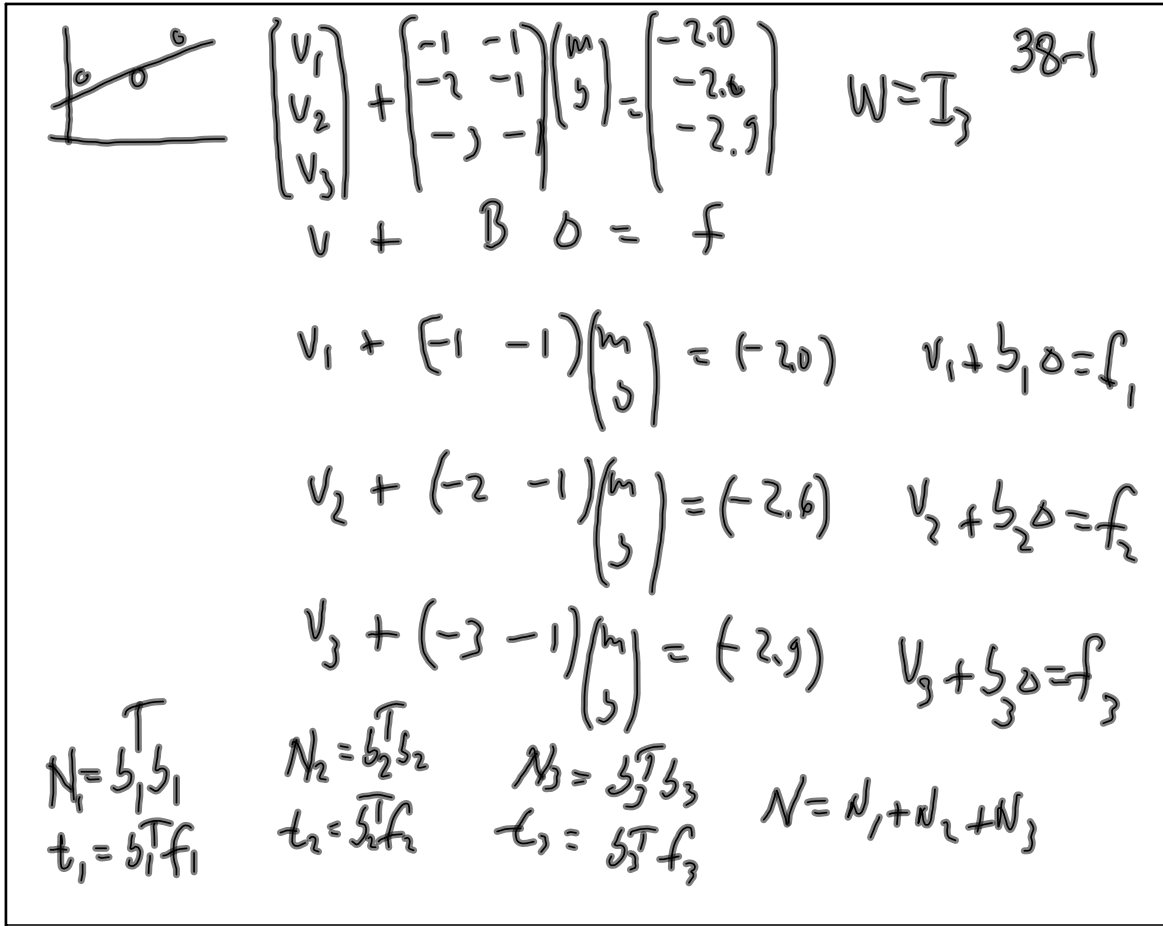 38-1
[v₁ v₂ v₃] + [-1 -1 -2 -1 -3 -1] (m b) = [-2.0 -2.6 -2.9] W = I₃
v + B Δ = f
v₁ + (-1 -1) (m b) = (-2.0) v₁ + b₁Δ = f₁
v₂ + (-2 -1) (m b) = (-2.6) v₂ + b₂Δ = f₂
v₃ + (-3 -1) (m b) = (-2.9) v₃ + b₃Δ = f₃
N₁ = b₁ᵀb₁ N₂ = b₂ᵀb₂ N₃ = b₃ᵀb₃ N = N₁ + N₂ + N₃
t₁ = b₁ᵀf₁ t₂ = b₂ᵀf₂ t₃ = b₃ᵀf₃